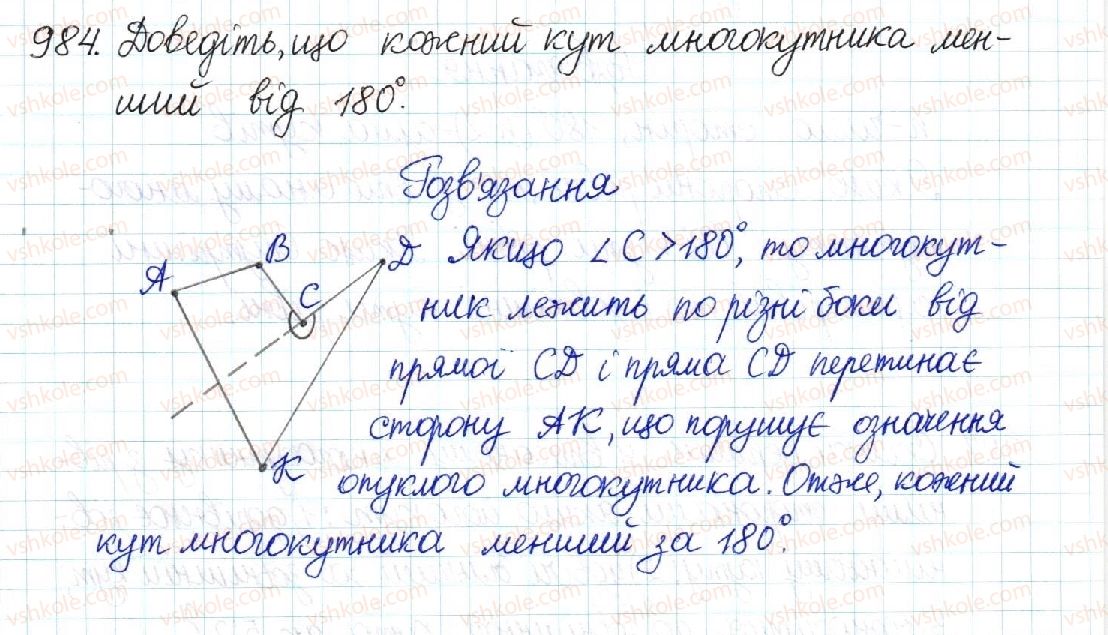 984. Доведіть, що кожний кут многокутника мен-
ший від 180°.
Розв'язання
A B C D K
Якщо ∠C > 180°, то многокут-
ник лежить по різні боки від
прямої CD і пряма CD перетинає
сторону AK, що порушує означення
опуклого многокутника. Отже, кожний
кут многокутника менший за 180°.
vshkole.com